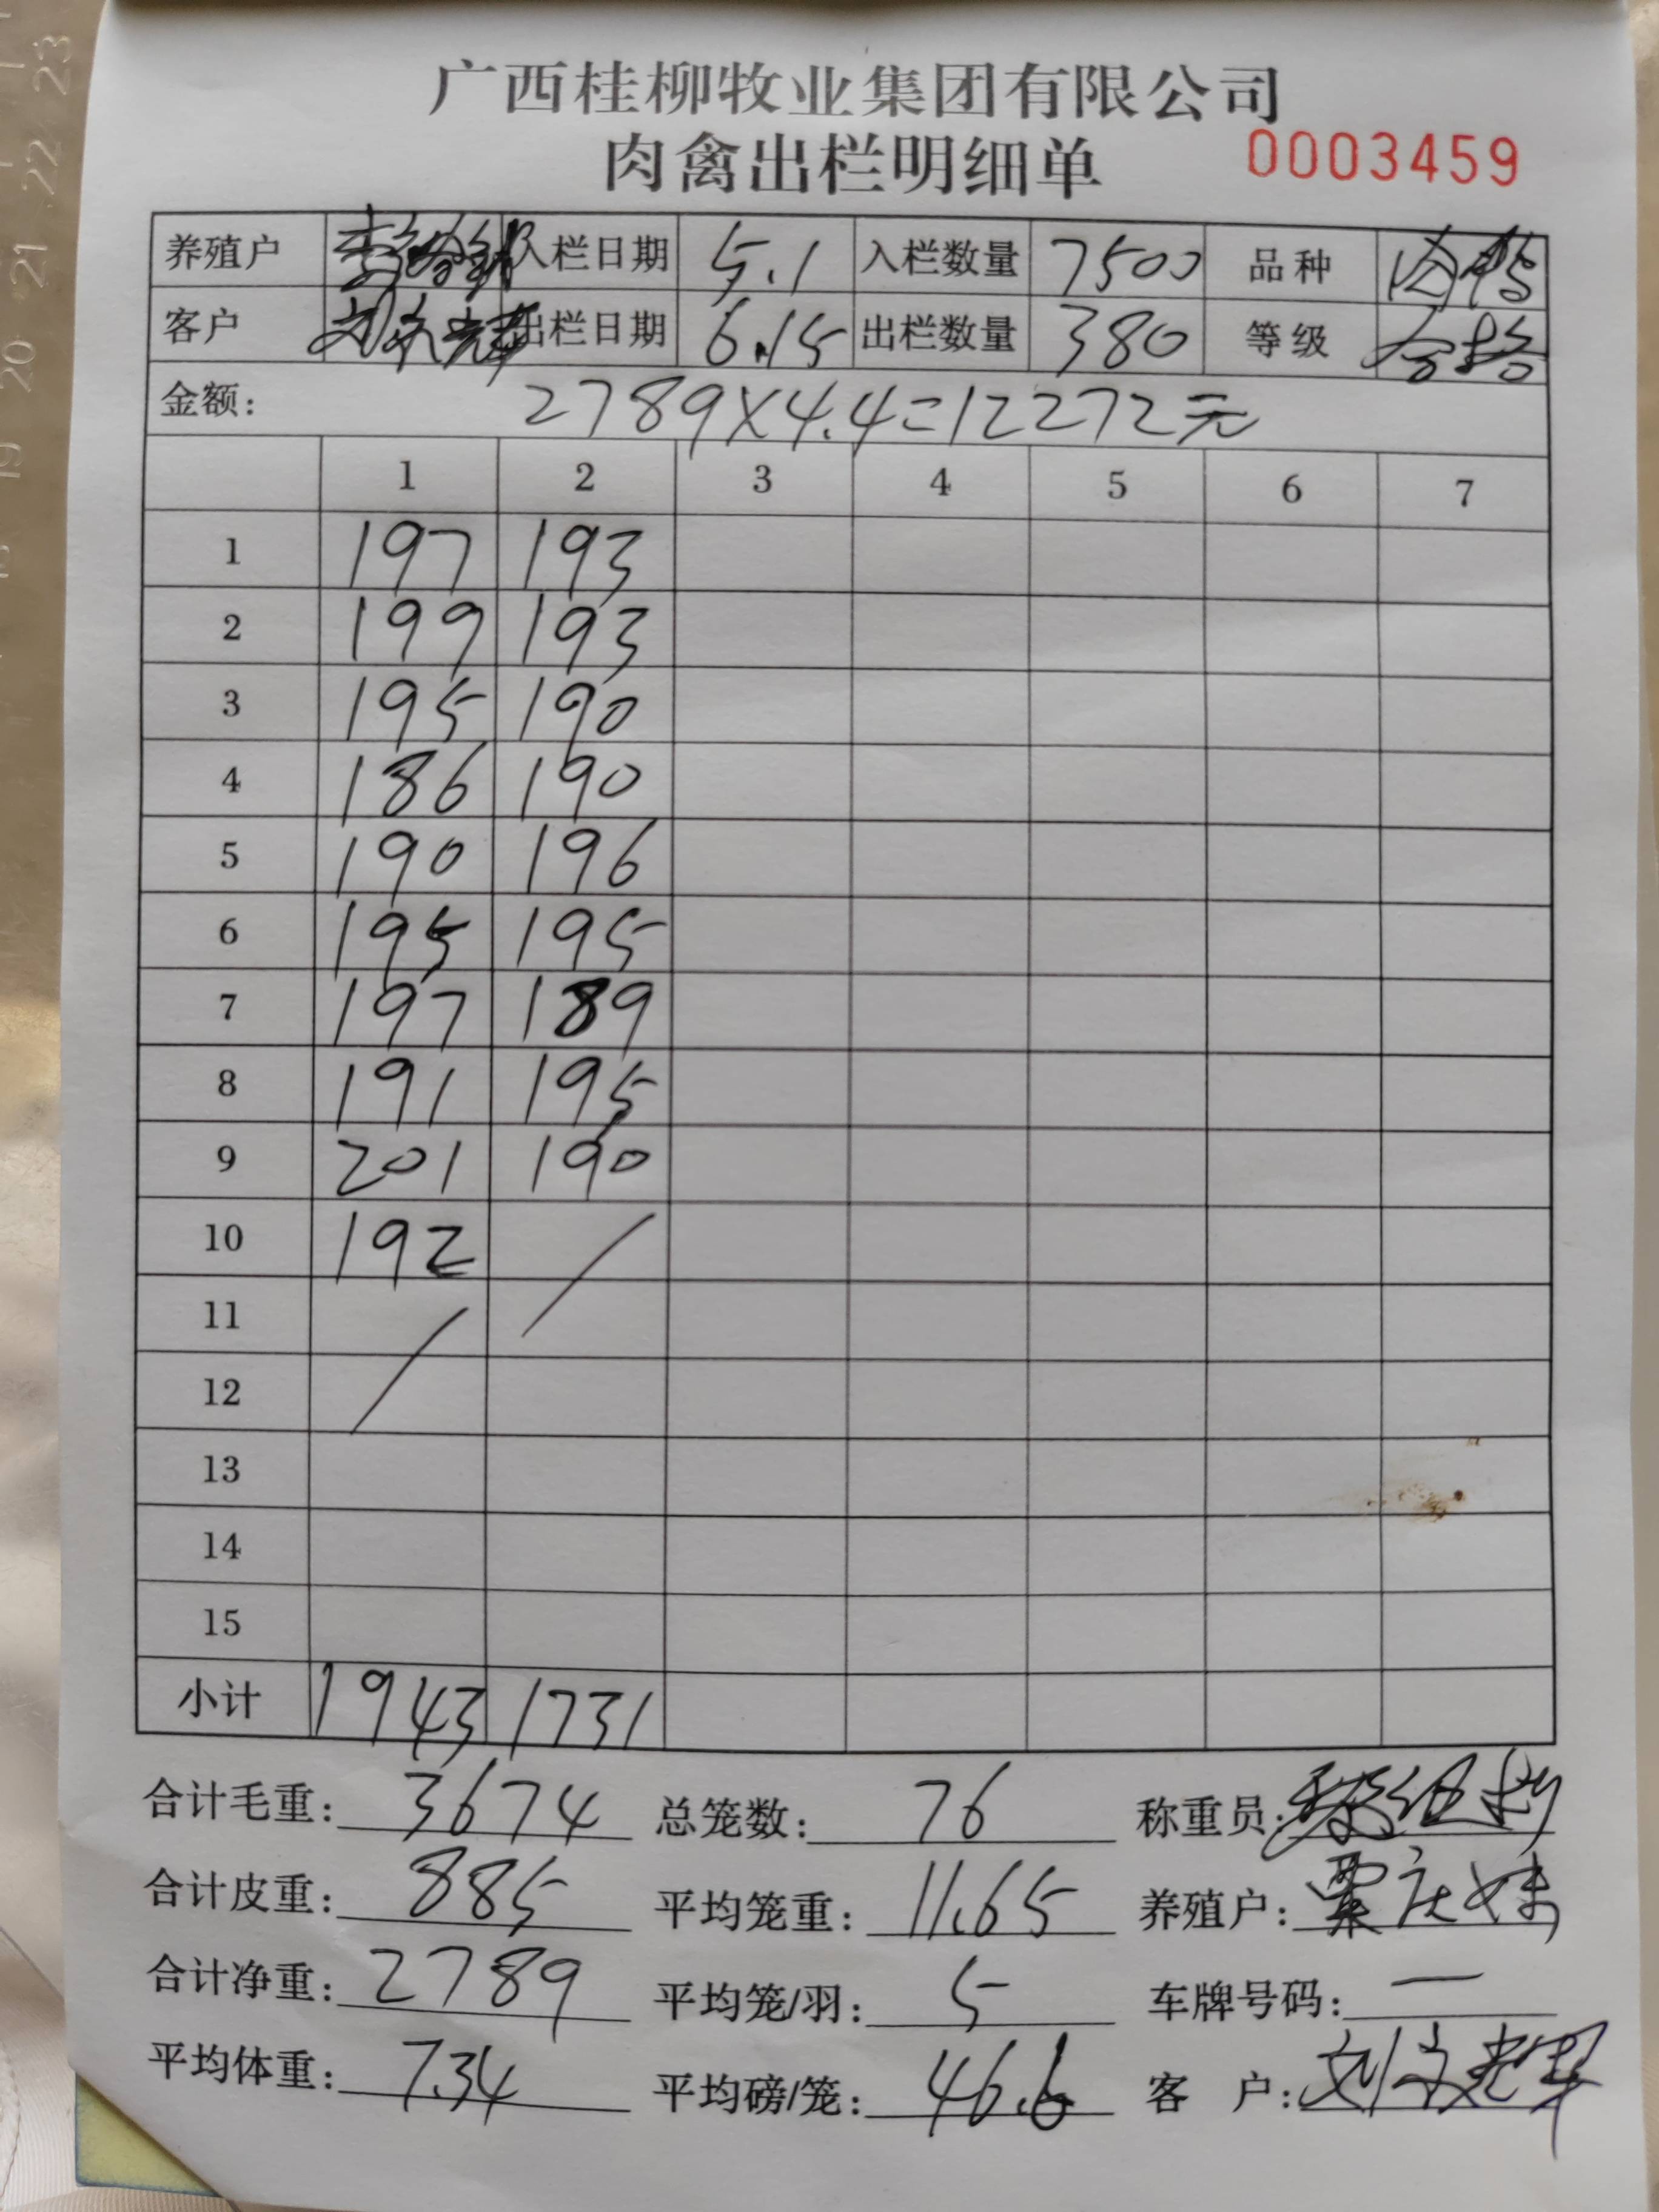 广西桂柳牧业集团有限公司
肉禽出栏明细单 0003459
养殖户 入栏日期 5.1 入栏数量 7500 品种 肉鸭
客户 出栏日期 6.15 出栏数量 380 等级 合格
金额: 2789×4.4=12272元
1 2 3 4 5 6 7
1 197 193
2 199 193
3 195 190
4 186 190
5 190 196
6 195 195
7 197 189
8 191 195
9 201 190
10 192 /
11 /
12
13
14
15
小计 1943 1731
合计毛重: 3674 总笼数: 76 称重员:
合计皮重: 885 平均笼重: 11.65 养殖户:
合计净重: 2789 平均笼/羽: 5 车牌号码: —
平均体重: 7.34 平均磅/笼: 46.6 客 户:
23
22
21
20
19